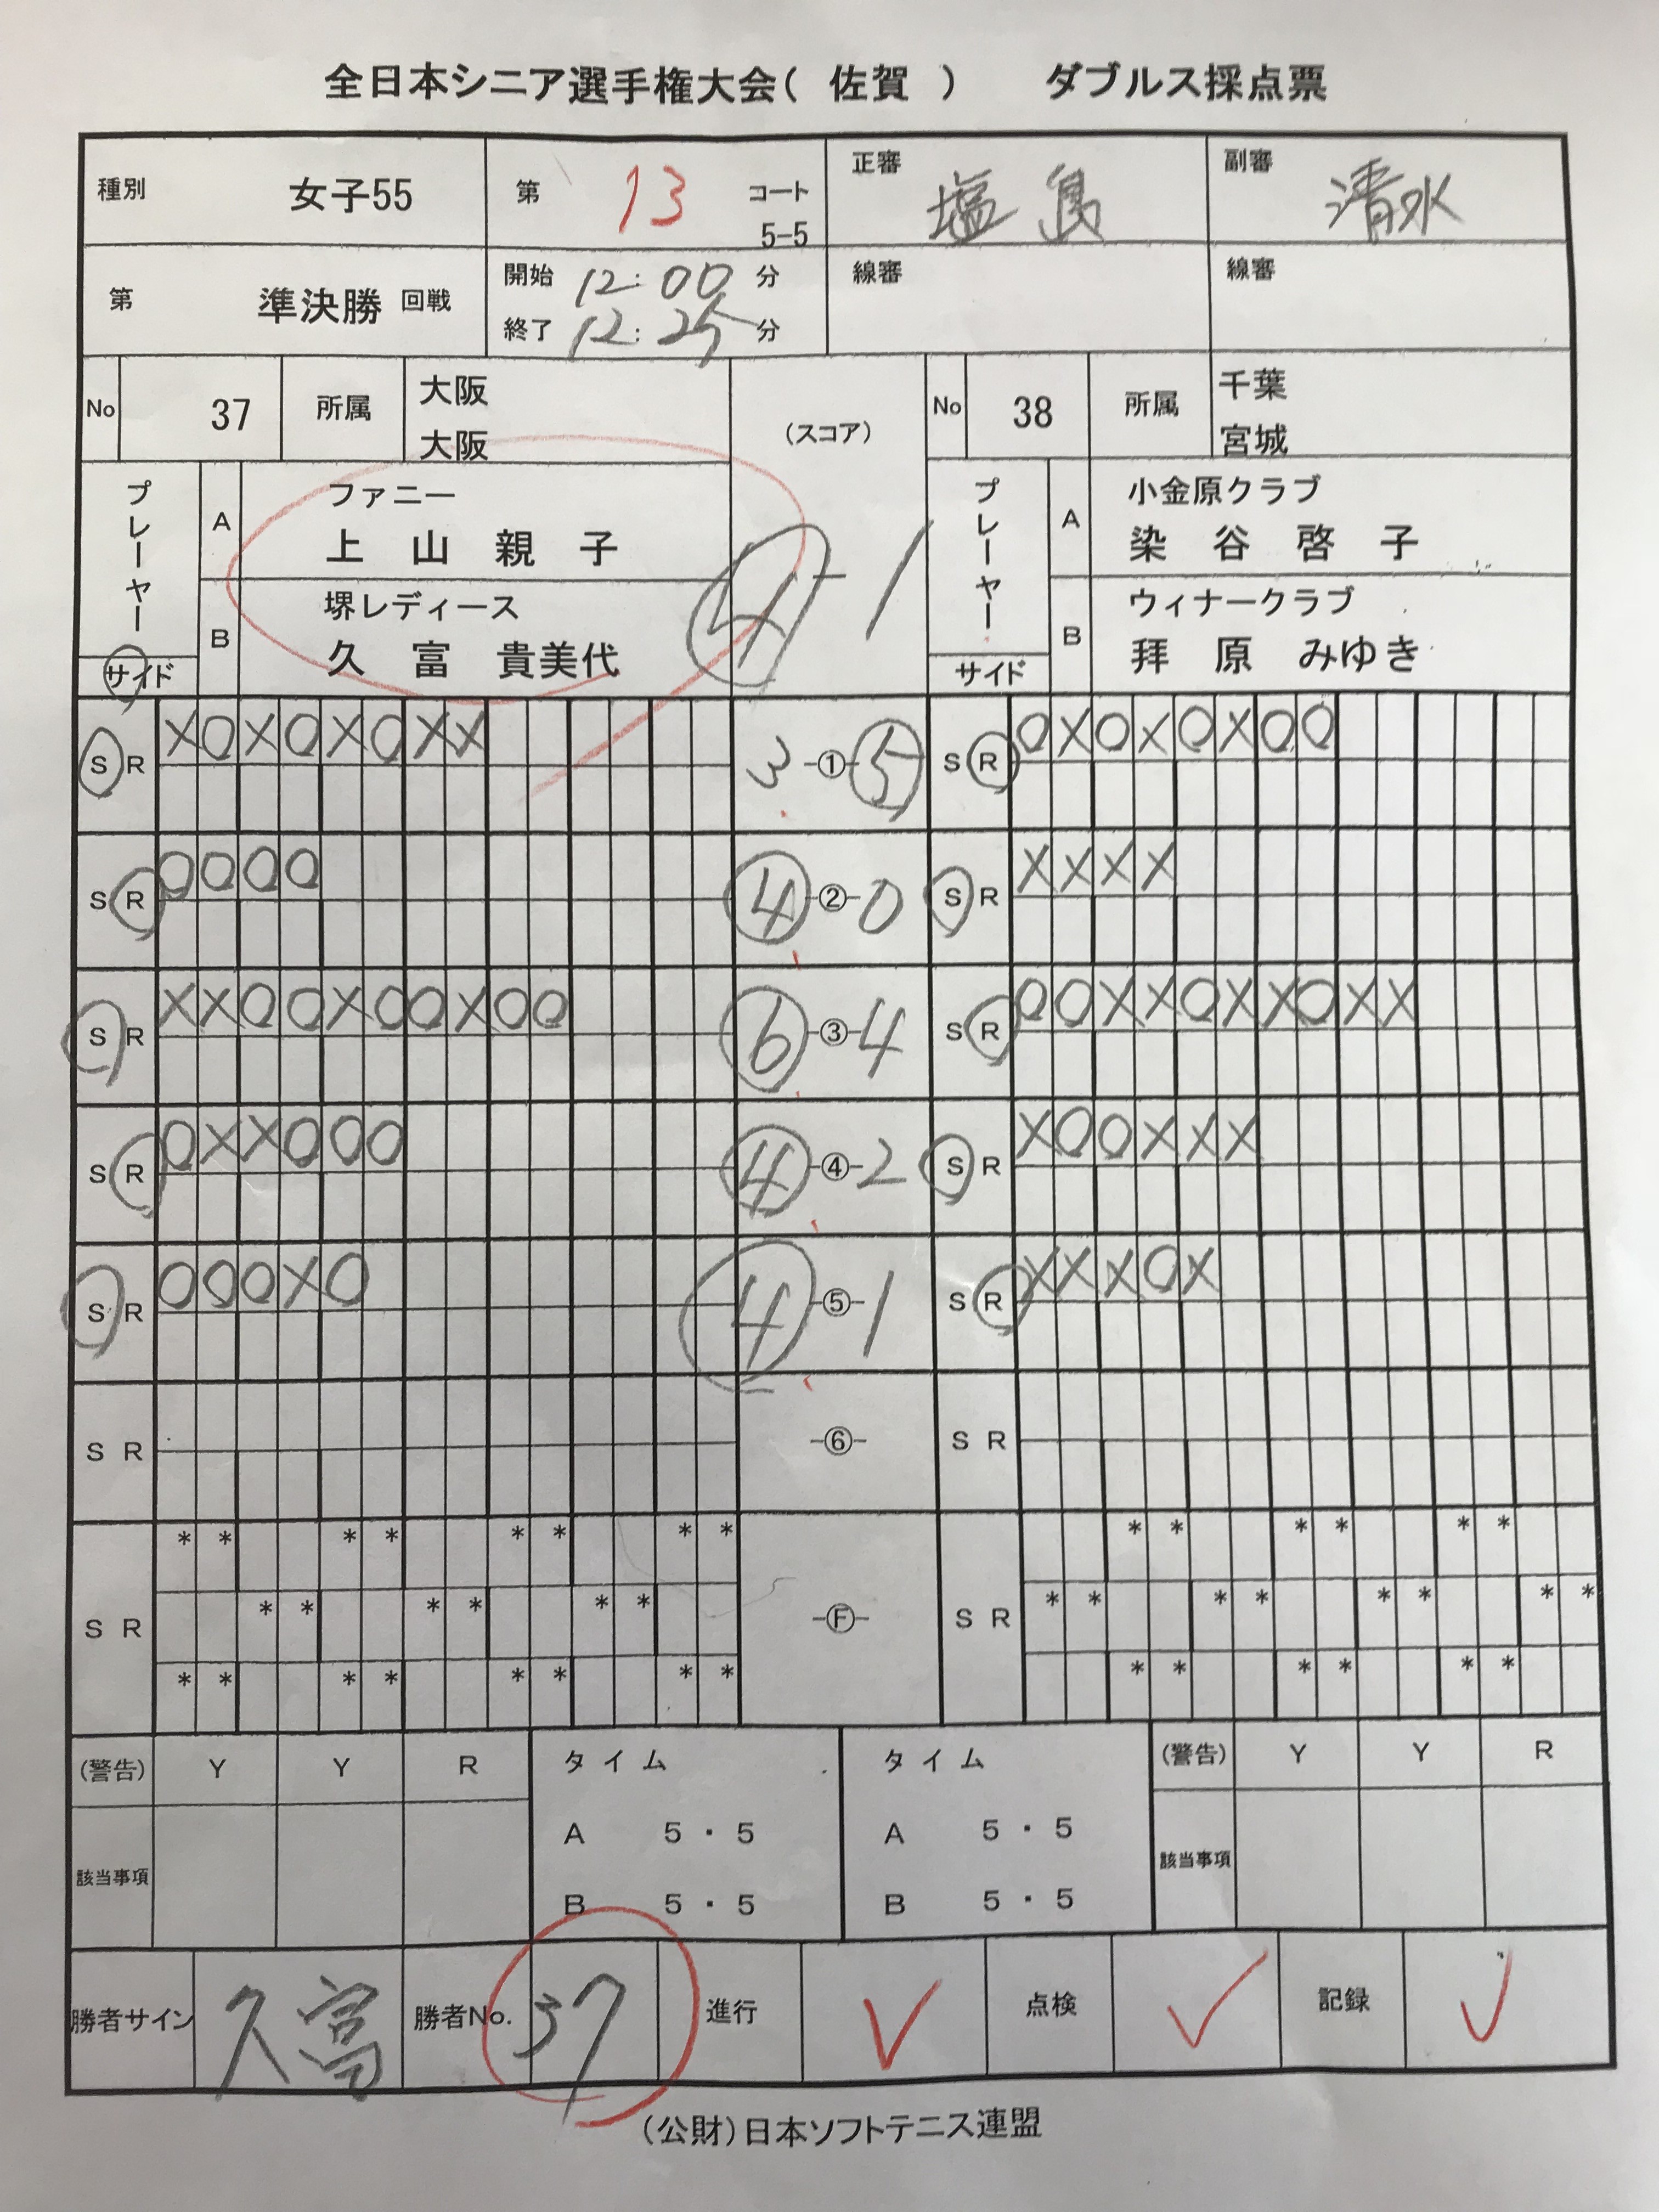 全日本シニア選手権大会( 佐賀 ) ダブルス採点票
種別 女子55 第 13 コート 5-5 正審 塩島 副審 清水
第 準決勝 回戦 開始 12:00 分 線審 線審
終了 12:25 分
No 37 所属 大阪 (スコア) No 38 所属 千葉
大阪 宮城
プレーヤー A ファニー プレーヤー A 小金原クラブ
上 山 親 子 4-1 染 谷 啓 子
B 堺レディース B ウィナークラブ
久 富 貴美代 拝 原 みゆき
サイド サイド
S R ×○×○×○×× 3-①-5 S R ○×○×○×○○
S R ○○○○ 4-②-0 S R ××××
S R ××○○×○○×○○ 6-③-4 S R ○○××○××○××
S R ○××○○○ 4-④-2 S R ×○○×××
S R ○○○×○ 4-⑤-1 S R ×××○×
S R -⑥- S R
* * * * * * * * * * * * * *
S R * * * * * * -Ⓕ- S R * * * * * * * *
* * * * * * * * * * * * * *
(警告) Y Y R タイム タイム (警告) Y Y R
該当事項 A 5・5 A 5・5 該当事項
B 5・5 B 5・5
勝者サイン 久富 勝者No. 37 進行 ✓ 点検 ✓ 記録 ✓
(公財)日本ソフトテニス連盟